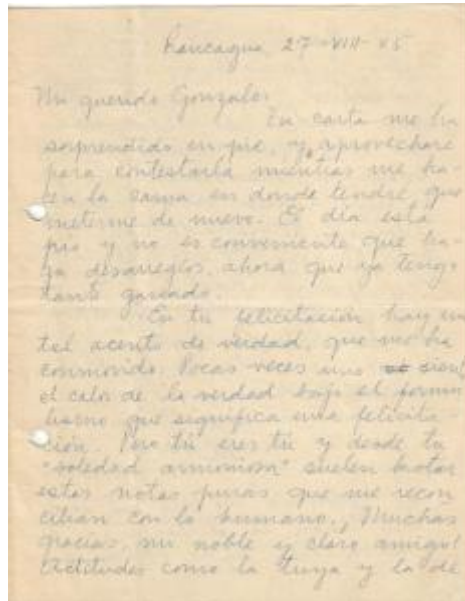 Rancagua 27-VIII-45
Mi querido Gonzalo:
Tu carta me ha
sorprendido en pie, y aprovecharé
para contestarla mientras me ha-
cen la cama en donde tendré que
meterme de nuevo. El día está
frío y no es conveniente que ha-
ga desarreglos, ahora que ya tengo
tanto ganado.
En tu felicitación hay un
tal acento de verdad, que me ha
conmovido. Pocas veces uno
el calor de la verdad bajo el
que significa una felicita-
ción. Pero tú eres tú y desde tu
"soledad armoniosa" suelen brotar
estas notas puras que me recon
cilian con lo humano. Muchas
gracias, mi noble y claro amigo!
Actitudes como la tuya y la de